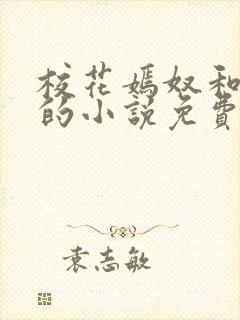 校花媽奴和
的小說免費
袁志敏